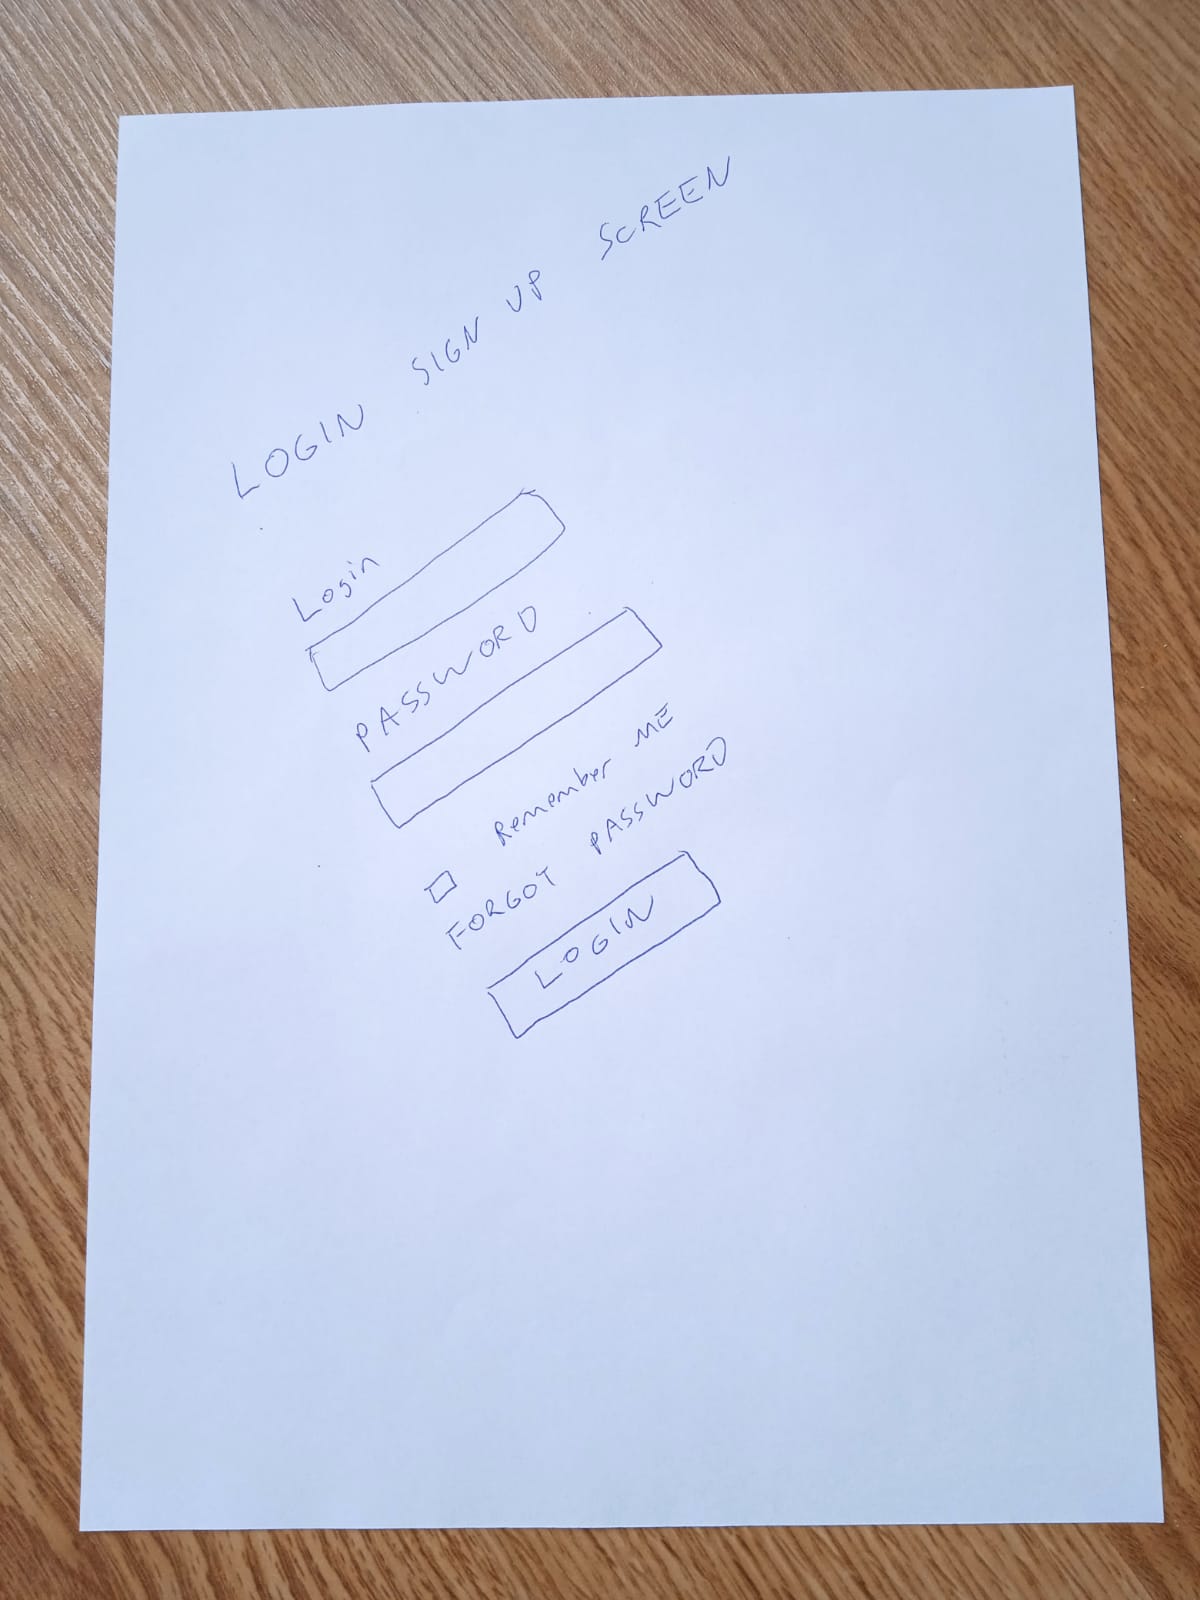 LOGIN SIGN UP SCREEN
Login
PASSWORD
Remember ME
FORGOT PASSWORD
LOGIN